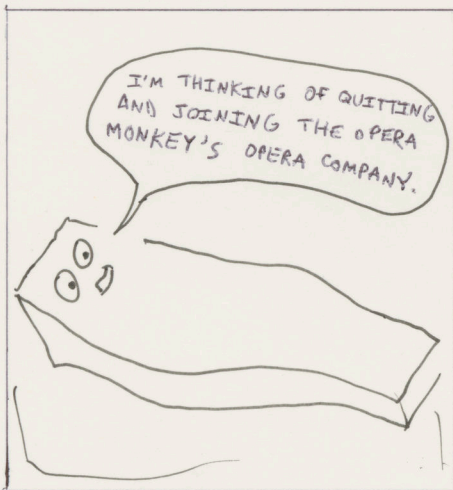 I'M THINKING OF QUITTING
AND JOINING THE OPERA
MONKEY'S OPERA COMPANY.